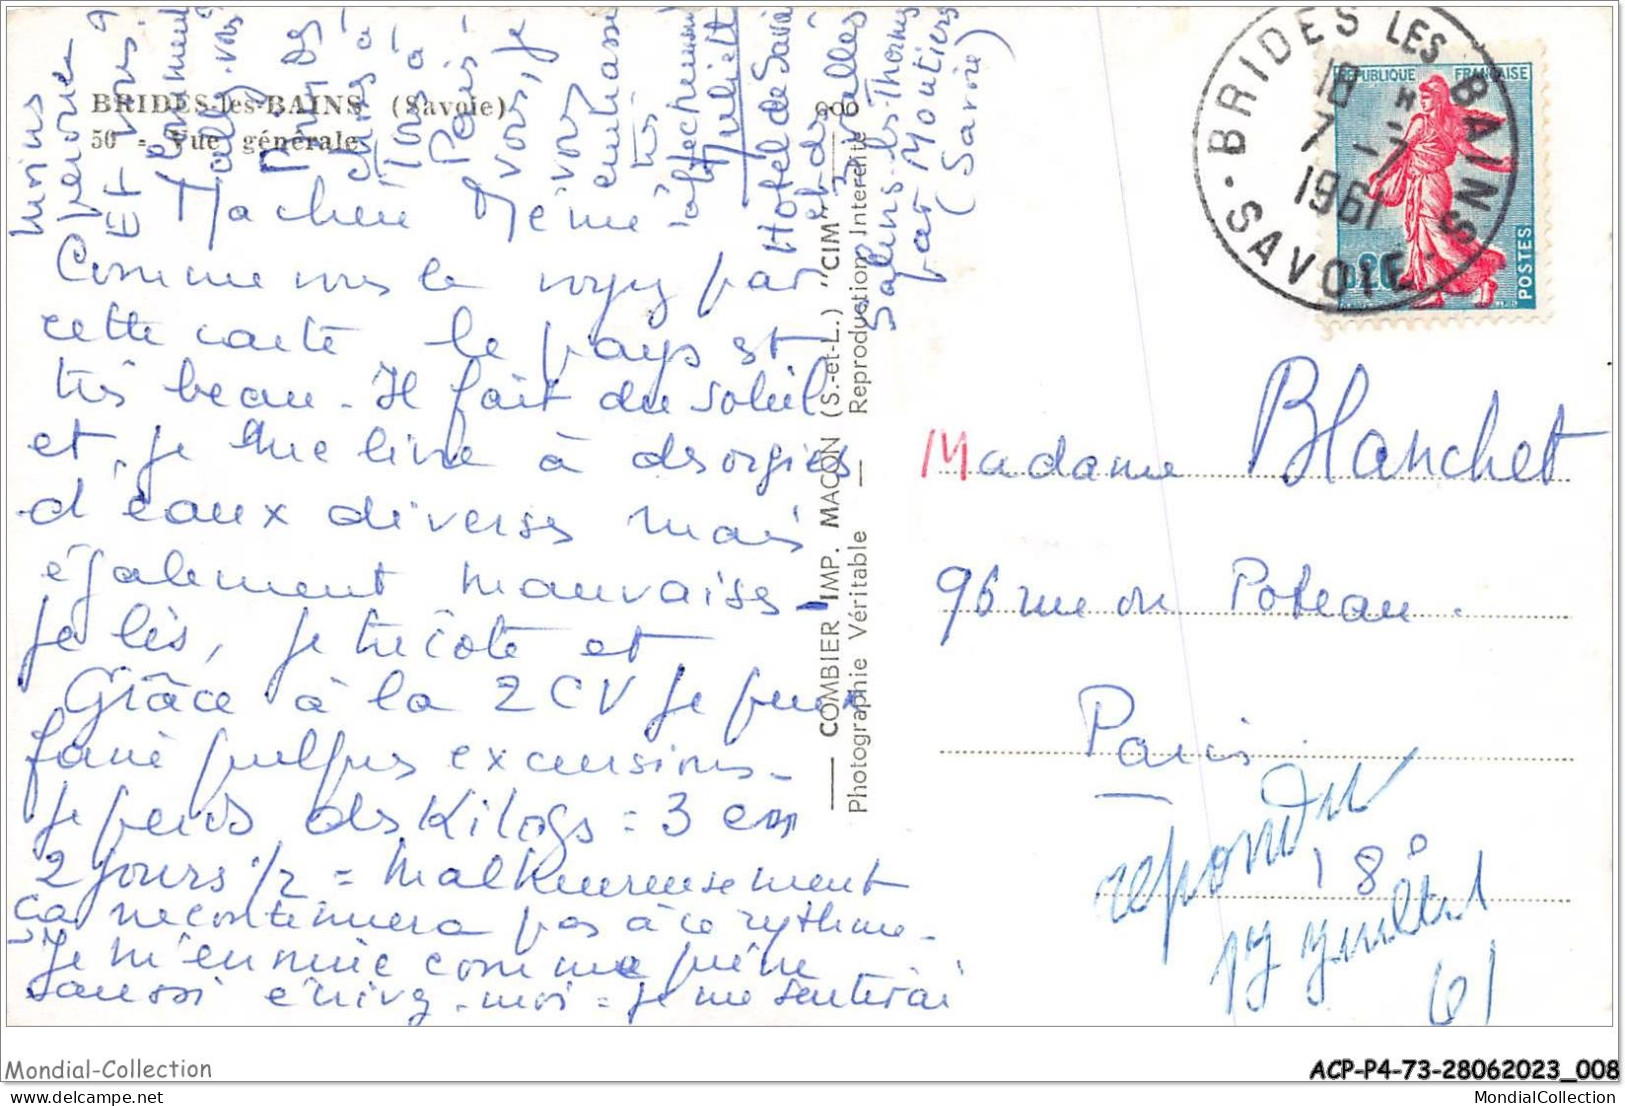 BRIDES-les-BAINS (Savoie)
50 - Vue générale
Ma chère Mémé
Comme vous le voyez par
cette carte le pays est
très beau - Il fait du soleil
et je me livre à des orgies
d'eaux diverses mais
également mauvaises -
Je lis, je tricote et
Grâce à la 2 CV je peux
faire quelques excursions -
Je perds des Kilogs = 3 en
2 jours 1/2 = Malheureusement
ça ne continuera pas à ce rythme -
Je m'ennuie comme
aussi écrivez-moi = je me sentirai
moins
Et vous ?
Comment
allez-vous
à
Paris
Vous, je
vous
embrasse
très
affectueusement
Juliette
Hotel de Savoie
et des
3 vallées
Salins-les-Thermes
par Moutiers
(Savoie)
COMBIER IMP. MACON (S.-et-L.) "CIM"
Photographie Véritable — Reproduction Interdite
BRIDES LES BAINS
18 H
7 -7
1961
SAVOIE
REPUBLIQUE FRANÇAISE
0.20
POSTES
Madame Blanchet
96 rue du Poteau.
Paris
18°
répondu
17 Juillet
61
Mondial-Collection
ACP-P4-73-28062023_008
MondialCollection.com